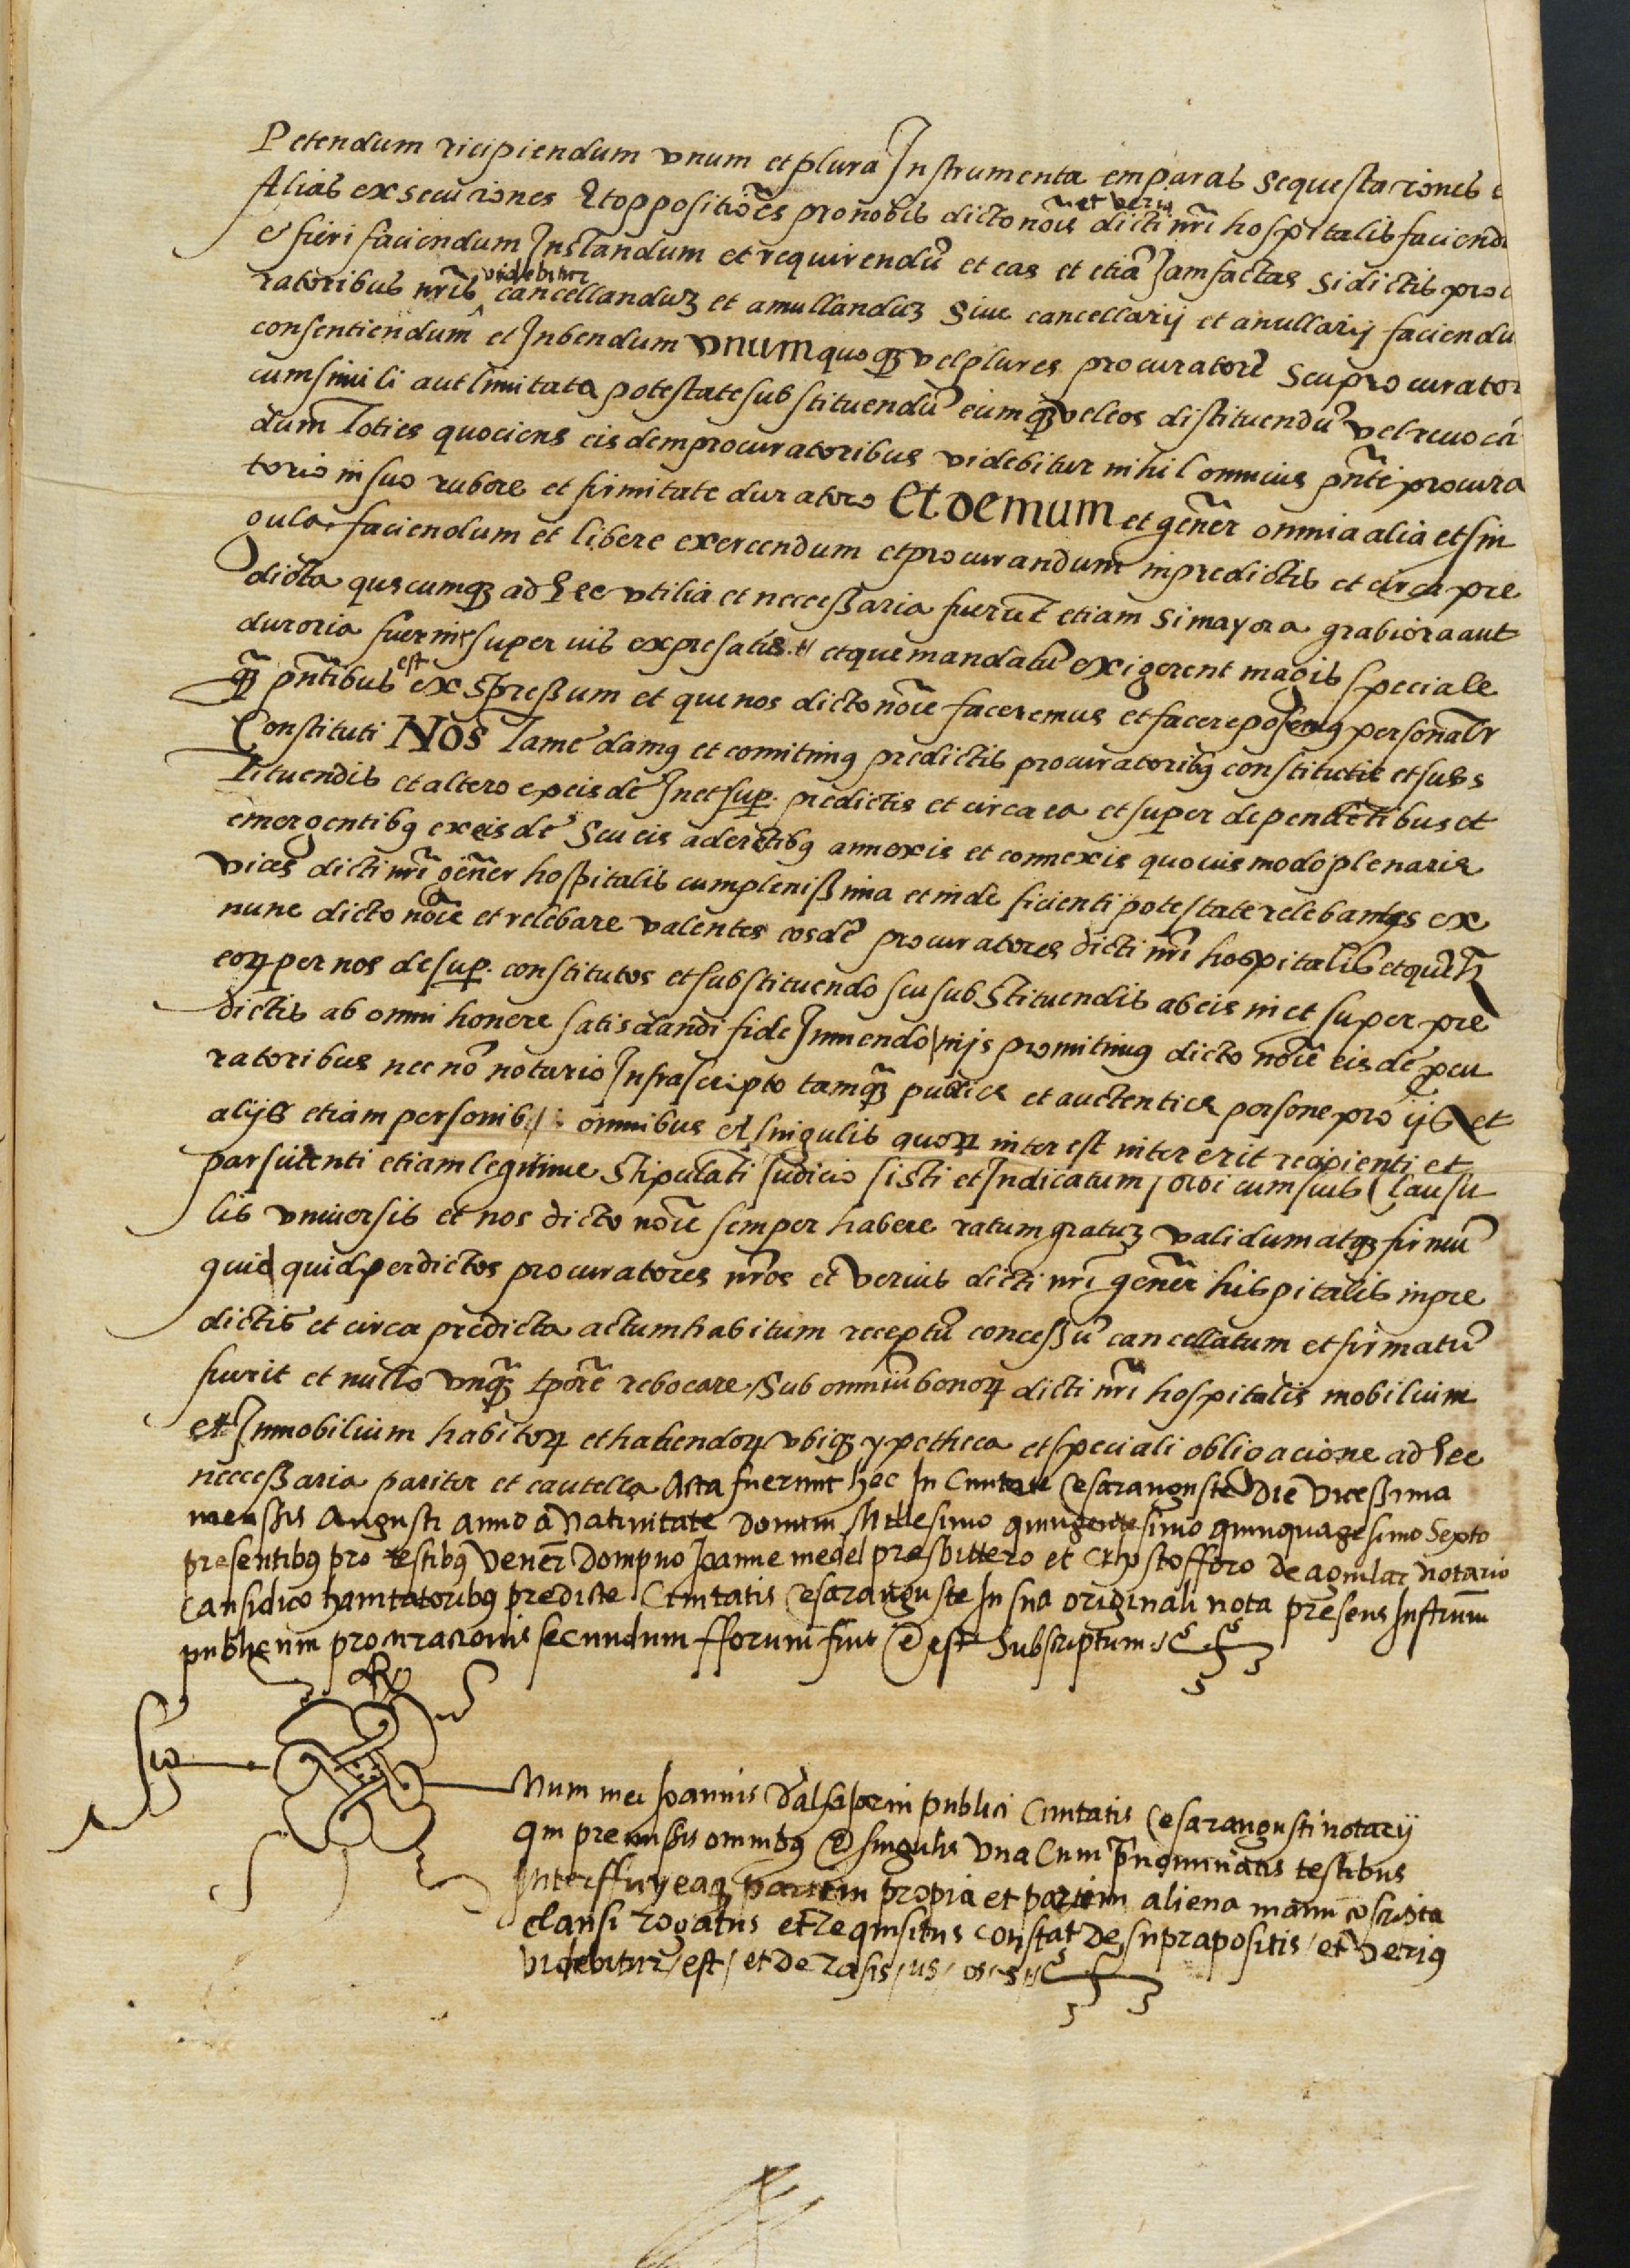 Petendum ricipiendum vnum et plura Instrumenta emparas sequestaciones e
Alias exsecuciones Et oppositiões pro nobis dicto nõie et veriũ dicti nr̃i hospitalis faciendũ
& fieri faciendum Instandum et requirendũ et eas et etiã Jam factas si dictis procu
ratoribus nr̃is videbitur cancellanduz et amullanduz siue cancellarij et anullarij faciendu
consentiendum et Inbendum vnum quoqz vel plures procuratorẽ seu procurator
cum simili aut limitata potestate substituendũ eumqz vel eos distituendũ vel reuocã
dum Toties quociens eisdem procuratoribus videbitur nihilominus pñti procura
torio in suo rubore et firmitate duratoro Et demum et gener̃ omnia alia et sin
gula faciendum et libere exercendum et procurandum in predictis et circa pre
dicta quecumqz ad hec vtilia et necceßaria fuerut etiam si mayora grabiora aut
duroria fuerint super uis expresatis et que mandatũ exigerent magis speciale
q̃z pñtibus est exspreßum et que nos dicto nõie faceremus et facere posemq personalr̃
Constituti Nos Tamẽ damq et comitimq predictis procuratoribq constitutis et subs
tituendis et altero ex eisdẽ In et sup. predictis et circa ea et super dependẽtibus et
emergentibq ex eisdẽ seu eis aderẽtibq annexis et connexis quouis modo plenarie
vices dicti nr̃i gener̃ hospitalis cum plenißima et inde ficienti potestate relebantes ex
nunc dicto nõie et relebare valentes eosdẽ procuratores dictj nr̃i hospitalis et quẽlz
eoꝝ per nos desup. constitutos et substituendo seu substituendis ab eis in et super pre
dictis ab omni honere satisdandi fide Jnmendo nijs promitimq dicto nõie eisdẽ pcu
ratoribus nec nõ notario Infrascripto tamq̃z publice et auctentice persone pro ijs et
alijs etiam personib omnibus et singulis quoꝝ inter est inter erit recipienti et
parsicenti etiam legitime stipulãti Judicio sisti et Judicatum solvi cum suis Clausu
lis vniuersis et nos dicto nõie semper habere ratum gratuz validum atqz firmũ
quid quid per dictos procuratores nr̃os et verius dicti nr̃i gener̃ hispitalis in pre
dictis et circa predicta actum habitum receptũ conceßũ cancellatum et firmatũ
fuerit et nullo vnq̃z tpõre rebocare sub omniũ bonoꝝ dicti nr̃i hospitalis mobilium
et Inmobilium habitoꝝ et habendoꝝ vbiqz ypotheca et speciali obligacione ad hec
necceßaria pariter et cautella Acta fuerunt hec In Ciuitate Cesarauguste Die Viceßima
menßis Augusti anno a Natiuitate Domini Millesimo quingentesimo quinquagesimo Sexto
presentibq pro testibq Vener̃ Dompno Joanne medel presbittero et Crhistofforo de aguilar notario
Causidico hauitatoribq prediste Ciuitatis Cesarauguste In sua originali nota presens Instrum̃
publicum procuracionis secundum fforum fuit & est Subscriptum
Sig
Num mei Joannis Dalfa publici Ciuitatis Cesaraugusti notarij
qui premißis omnibq & singulis Vna Cum p̃nominatis testibus
Interffuy eaqz partim propia et partim aliena manu cõscripta
clausi rogatus et Requisitus constat de suprapositis / et veriq
videbitur / est / et de Rasis / us / os / s